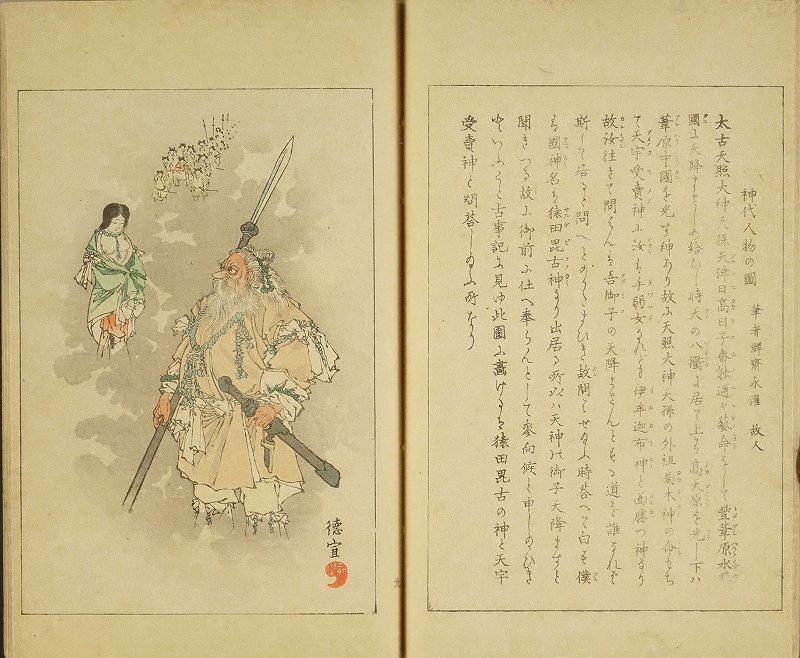 神代人物の圖　筆者鮮齋永濯　故人
太古天照大神天孫天津日高日子番能邇々藝命をして豐葦原水穂
國に天降ましめ給ひし時天の八衢に居て上は高天原を光し下ハ
葦原中國を光す神あり故に天照大神天孫の外祖高木神の命もち
て天宇受賣神に汝は手弱女なれども伊牟迦布神と面勝つ神なり
故汝往きて問んは吾御子の天降まさんとする道を誰なれバ
斯して居ると問へとのらしたまひき故問はせ給ふ時答へて白す僕
は國神名は猿田毘古神なり出居る所以ハ天神の御子天降ますと
聞きつる故に御前に仕へ奉らんとして參向候と申し
いふこと古事記に見ゆ此圖に畫けるは猿田毘古の神と天宇
受賣神と問答し給ふ所なり
德宣